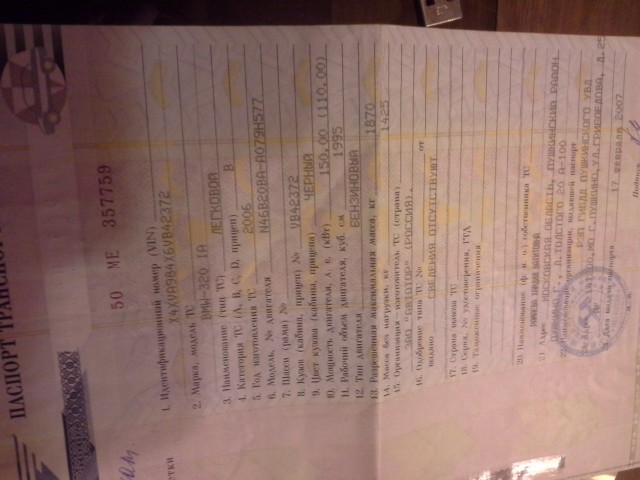 ПАСПОРТ ТРАНСПОРТ
50 МЕ 357759
1. Идентификационный номер (VIN) X4XVA984X6VB42372
2. Марка, модель ТС BMW-320 IA
3. Наименование (тип ТС) ЛЕГКОВОЙ
4. Категория ТС (А, В, С, D, прицеп) B
5. Год изготовления ТС 2006
6. Модель, № двигателя N46B20BA-A079H577
7. Шасси (рама) №
8. Кузов (кабина, прицеп) № VB42372
9. Цвет кузова (кабины, прицепа) ЧЕРНЫЙ
10. Мощность двигателя, л. с. (кВт) 150.00 (110.00)
11. Рабочий объем двигателя, куб. см 1995
12. Тип двигателя БЕНЗИНОВЫЙ
13. Разрешенная максимальная масса, кг 1870
14. Масса без нагрузки, кг 1425
15. Организация - изготовитель ТС (страна)
ЗАО "АВТОТОР" (РОССИЯ).
16. Одобрение типа ТС № от
выдано СВЕДЕНИЯ ОТСУТСТВУЮТ
17. Страна вывоза ТС
18. Серия, № удостоверения, ГТД
19. Таможенные ограничения
20. Наименование (ф. и. о.) собственника ТС
21. Адрес МОСКОВСКАЯ ОБЛАСТЬ, ПУШКИНСКИЙ РАЙОН
Л.ТОЛСТОГО 20 А-100
организации, выдавшей паспорт
РЭП ГИБДД ПУШКИНСКОГО УВД
МО Г.ПУШКИНО, УЛ.ГРИБОЕДОВА, Д.
Дата выдачи паспорта 17 ФЕВРАЛЯ 2007
Подпись